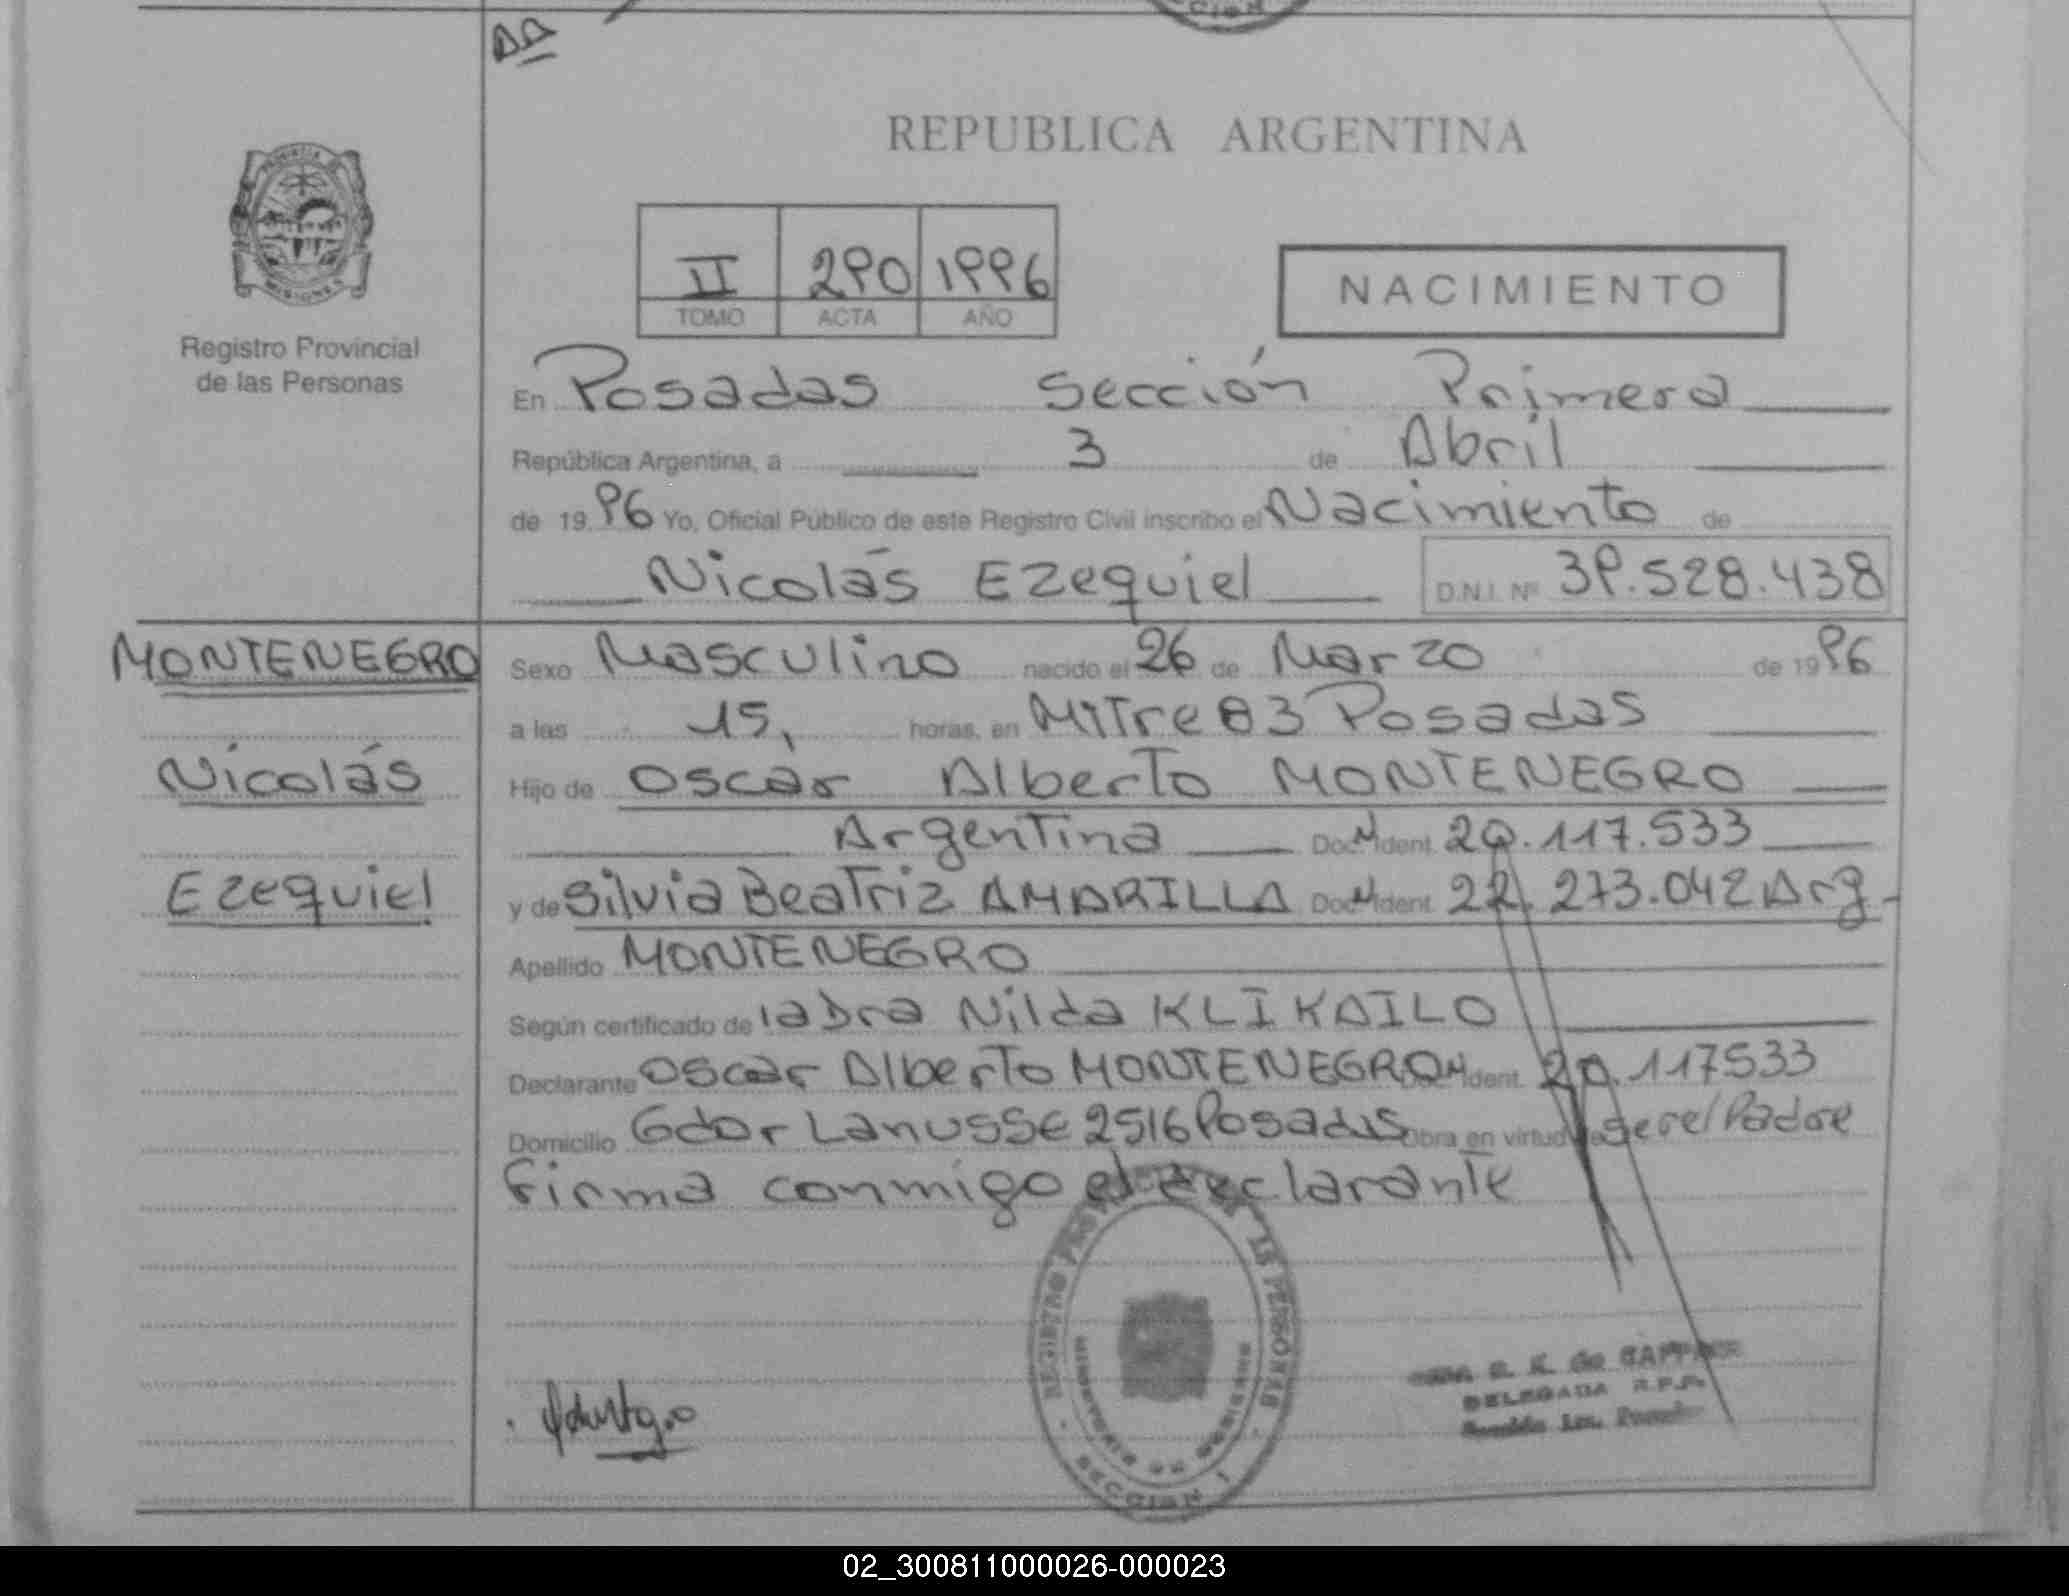 REPUBLICA ARGENTINA
PROVINCIA DE
MISIONES
Registro Provincial
de las Personas
II 290 1996
TOMO ACTA AÑO
NACIMIENTO
En Posadas Sección Primera
República Argentina, a 3 de Abril
de 19 96 Yo, Oficial Público de este Registro Civil inscribo el Nacimiento de
Nicolás Ezequiel D.N.I. Nº 39.528.438
MONTENEGRO
Nicolás
Ezequiel
Sexo Masculino nacido el 26 de Marzo de 19 96
a las 15, horas, en Mitre 83 Posadas
Hijo de Oscar Alberto MONTENEGRO
Argentina Doc. Ident. 20.117.533
y de Silvia Beatriz AMARILLA Doc. Ident. 22.273.042 Arg.
Apellido MONTENEGRO
Según certificado de la Dra Nilda KLIKAILO
Declarante Oscar Alberto MONTENEGRO Ident. 20.117533
Domicilio Gdor Lanusse 2516 Posadas Obra en virtud de ser el Padre
Firma conmigo el declarante
REGISTRO LAS PERSONAS
MINISTERIO DE GOBIERNO
SECCION 1
DELEGADA R.P.P.
02_300811000026-000023